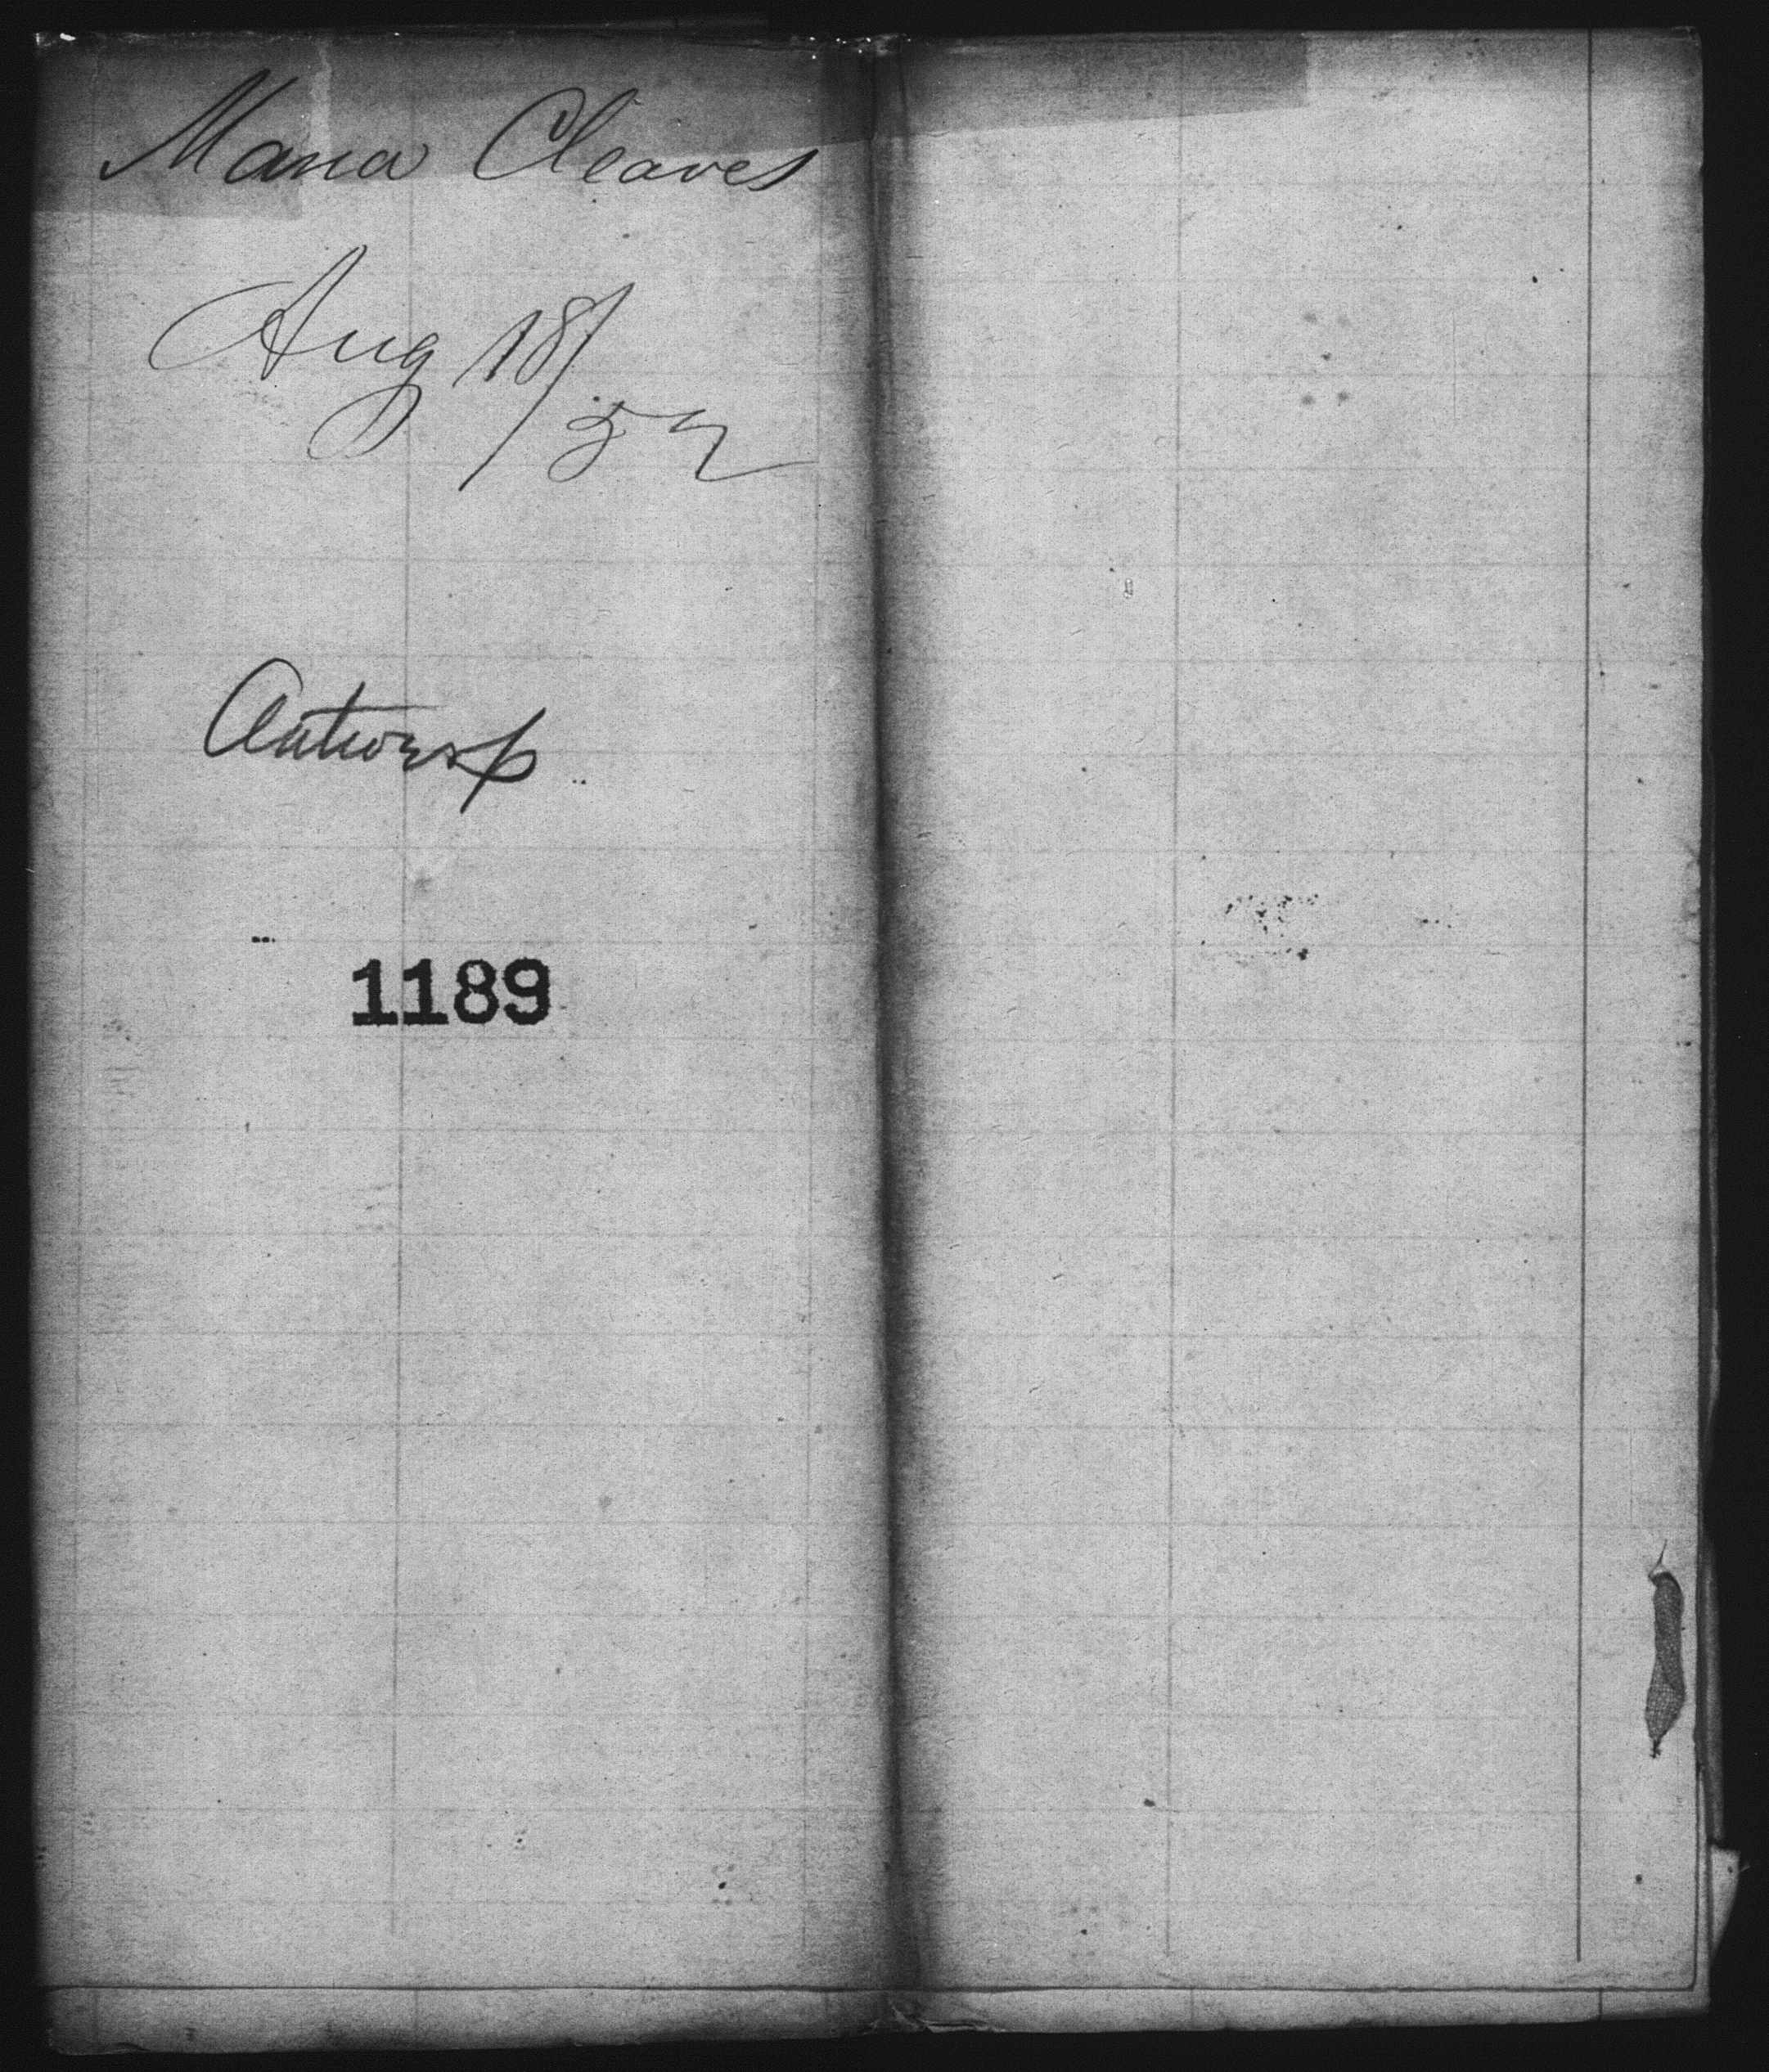 Maria Cleaves
Aug 18/
52
Antwerp
1189